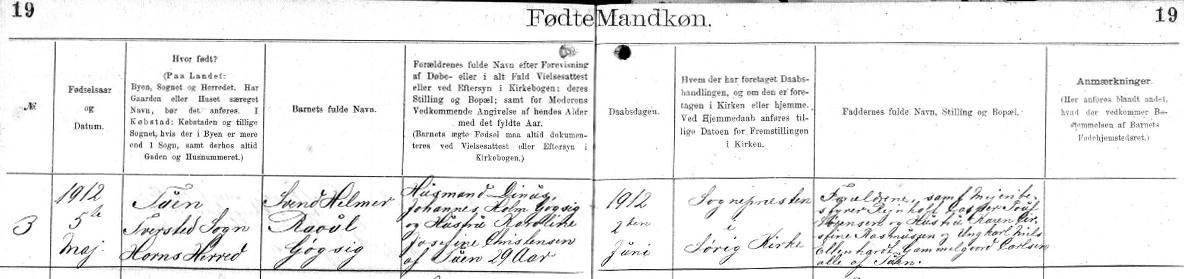 19
Fødte Mandkøn.
19
№
Fødselsaar
og
Datum.
Hvor født?
(Paa Landet:
Byen, Sognet og Herredet. Har
Gaarden eller Huset særeget
Navn, bør det anføres. I
Købstad: Købstaden og tillige
Sognet, hvis der i Byen er mere
end 1 Sogn, samt derhos altid
Gaden og Husnummeret.)
Barnets fulde Navn.
Forældrenes fulde Navn efter Forevisning
af Døbe- eller i alt Fald Vielsesattest
eller ved Eftersyn i Kirkebogen; deres
Stilling og Bopæl; samt for Moderens
Vedkommende Angivelse af hendes Alder
med det fyldte Aar.
(Barnets ægte Fødsel maa altid dokumen-
teres ved Vielsesattest eller Eftersyn i
Kirkebogen.)
Daabsdagen.
Hvem der har foretaget Daabs-
handlingen, og om den er fore-
tagen i Kirken eller hjemme.
Ved Hjemmedaab anføres til-
lige Datoen for Fremstillingen
i Kirken.
Faddernes fulde Navn, Stilling og Bopæl.
Anmærkninger.
(Her anføres blandt andet,
hvad der vedkommer Be-
stemmelsen af Barnets
Fødehjemstedsret.)
3
1912
5te
Maj
Tuen
Tversted Sogn
Horns Herred
Svend Helmer
Raoul
Gøgsig
Husmand Linus
Johannes Holm Gøgsig
og Hustru Karoline
Josefine Christensen
af Tuen 29 Aar
1912
2den
Juni
Sognepræsten
i
Sørig Kirke
Forældrene, samt Mejeribe-
styrer
Hustru Karen Kir-
stine Rasmussen, Ungkarl Niels
Gammelgaard Carlsen
alle af Tuen.